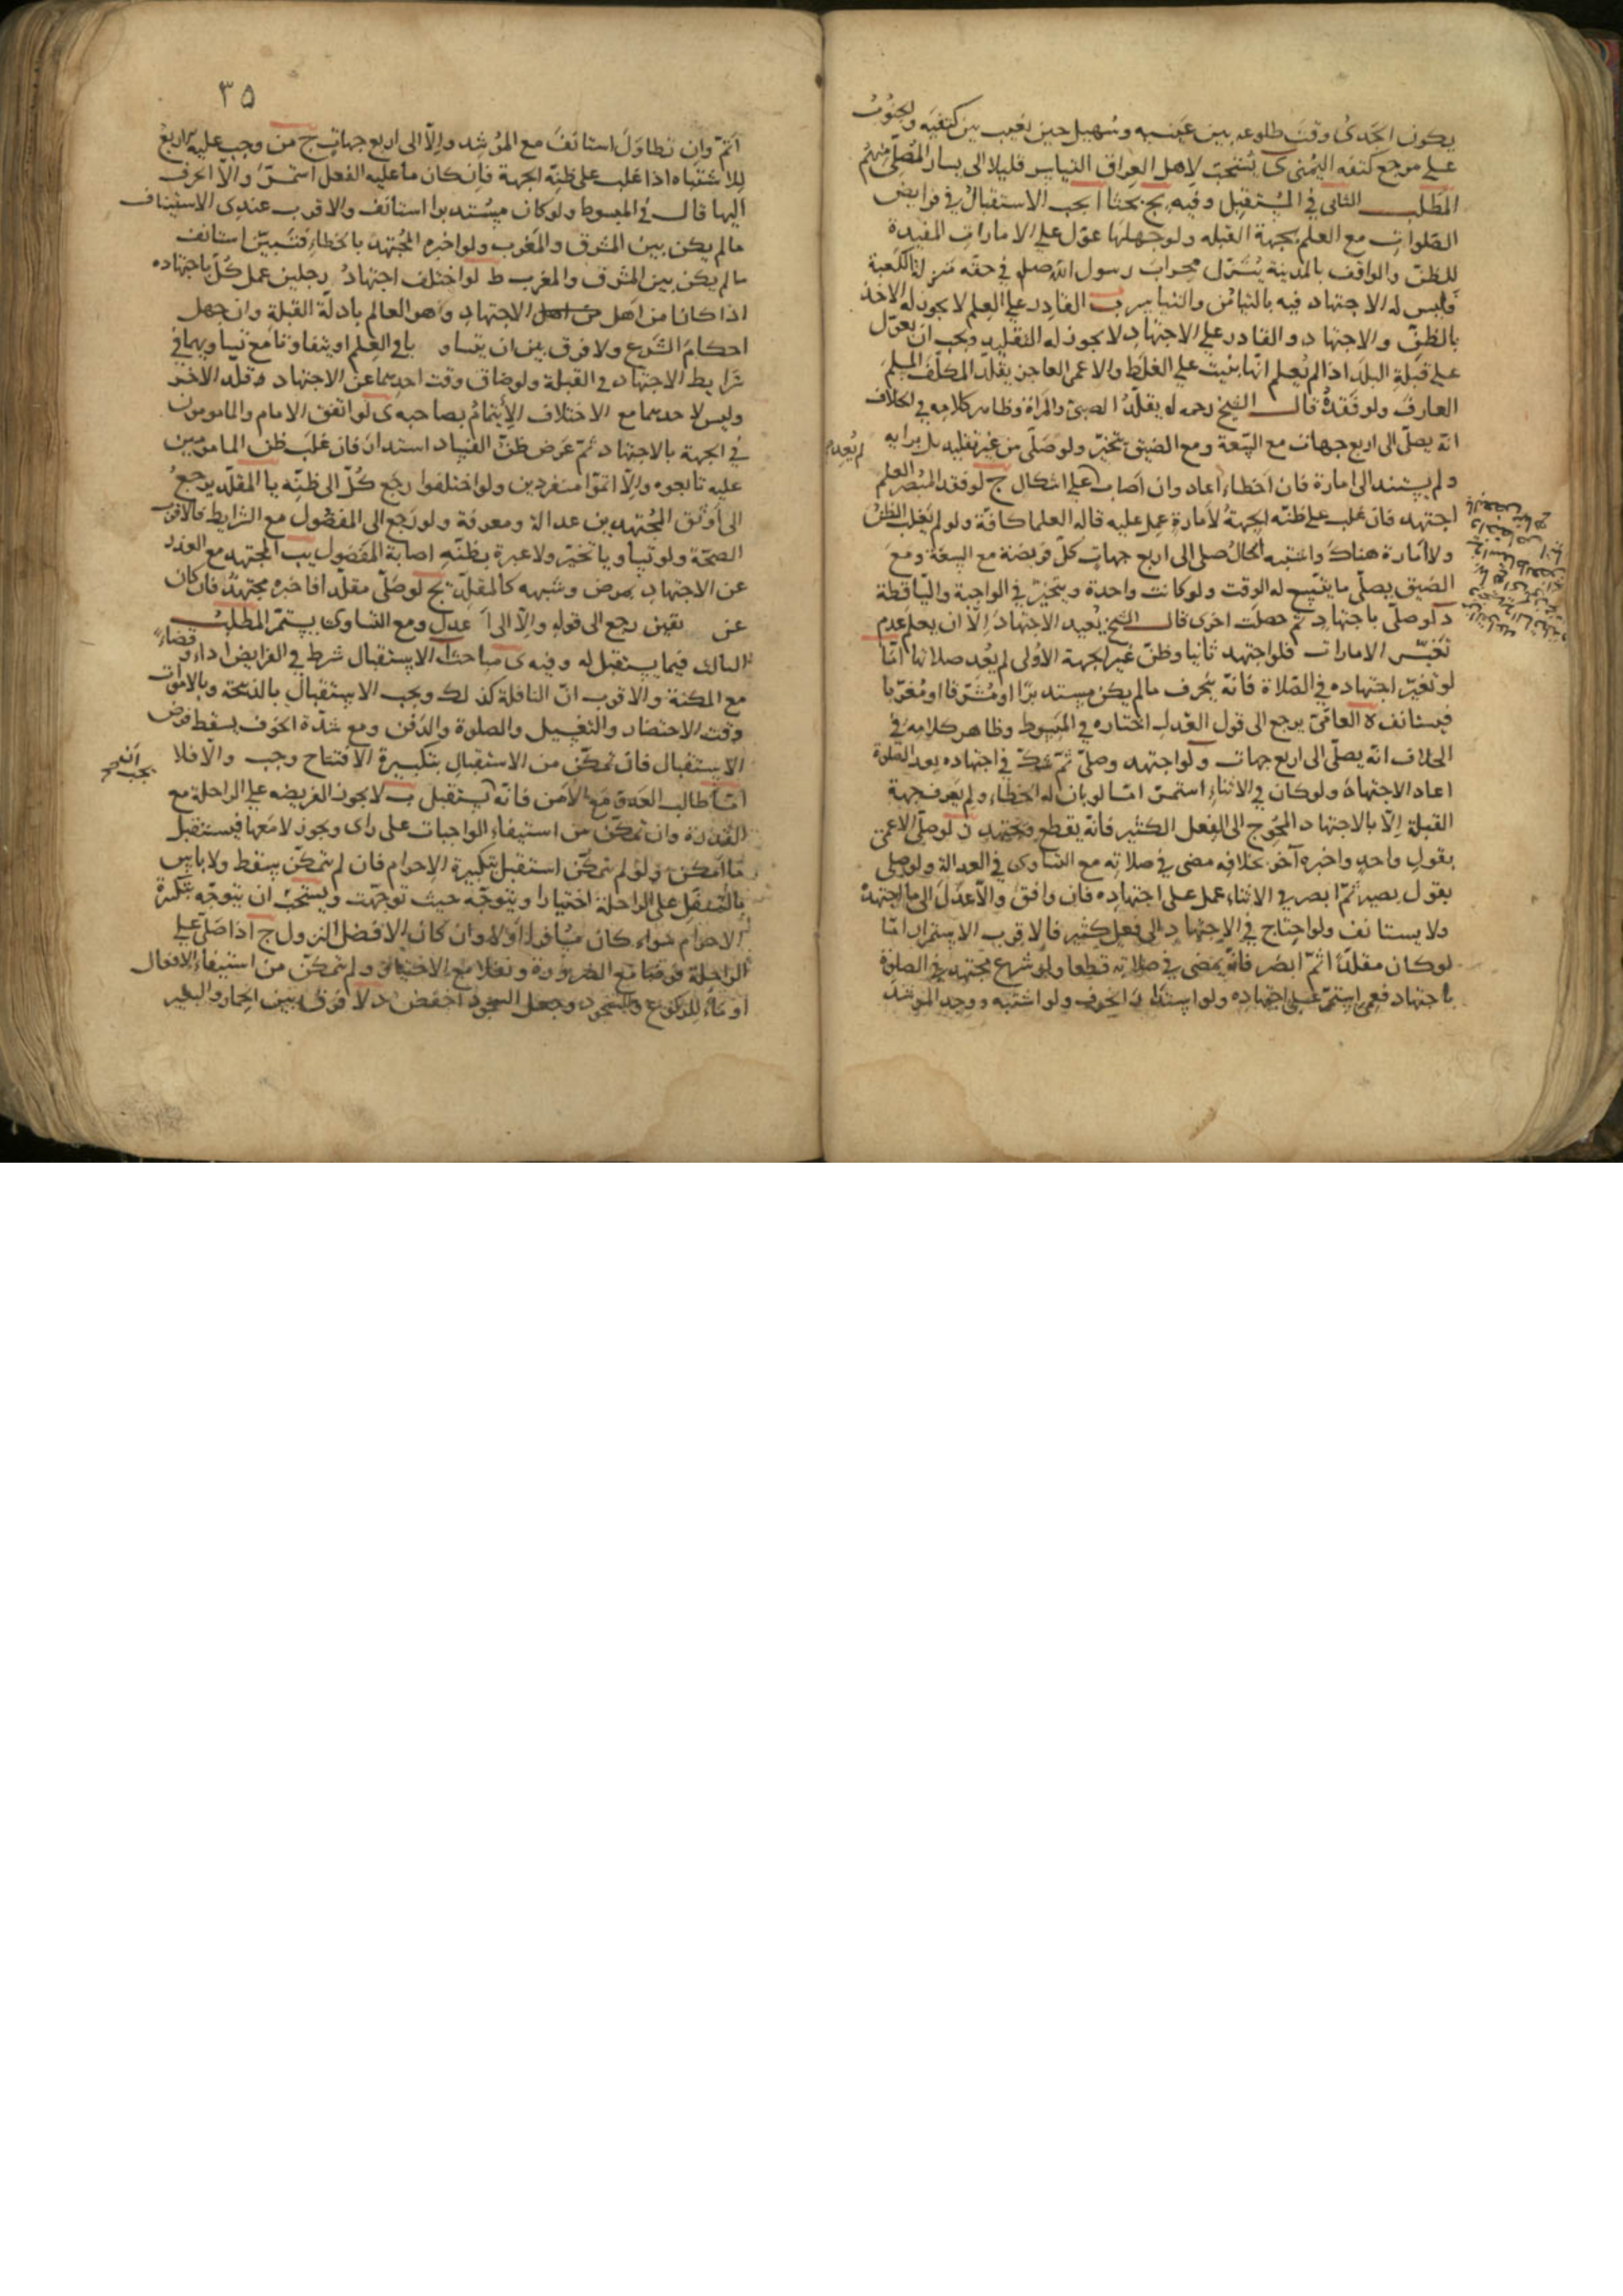 يكون الجَدىُ وقتَ طلوعه بين عينيه وسُهيل حين يغيب بين كتفيه والجنُوبُ
على مرجع كتفه اليُمنى ى يُستحبّ لاهل العِراق التياسر قليلا الى يسار المصَلّى منهُم
المطلب الثانى فى المُستقبِل وفيه يج بحثا ا يجب الاستقبالُ فى فرايض
الصّلوات مع العلم بجهة القبله ولو جهلها عوّل على الامارات المفيدة
للظنّ والواقف بالمدينة يُنزّل محرابَ رسول الله صلعم فى حقّه منزلة الكعبة
فليس له الاجتهاد فيه بالتيامُن والتياسر ب القادر على العِلم لا يجوز له الاخذ
بالظنّ والاجتهاد والقادر على الاجتهاد لا يجوز له التقليد ويجب ان يعوّل
على قبلةِ البلد اذا لم يُعلم انّها بُنيت على الغلَط والاعمى العاجز يقلّد المكلّفَ المسلمَ
العارفَ ولو فَقدهُ قال الشيخ رحمه له يقلّدُ الصبىّ والمَراة وظاهر كلامِه فى الخلاف
انّه يصلّى الى اربع جهات مع السّعة ومع الضيق يتخيّر ولو صَلّى من غير تقليد بل برايه
لم يُعِد
ولم يستند الى امارة فان اخطاءَ اعاد وان اَصاب على اشكال ج لو فقد المُبصر العلم
اجتهد فان غلب على ظنّه الجهةُ لاَمارةٍ عمل عليه قاله العلما كافّة ولو لم يَغلِب الظنّ
ولا اَمارة هناك واشتبه الحالُ صلى الى اربع جهات كلّ فريضة مع السعة ومع
الضيق يصلّى ما يتّسع له الوقت ولو كانت واحدة ويتخيّرُ فى الواجبة والسّاقطة
د لو صلّى باجتهاد ثمّ حضلت اخرى قال الشيخ يُعيد الاجتهاد اِلّا ان يعلم عدم
تغيّر الامارات فلو اجتهد ثانيا وظنّ غيرَ الجهة الاُولى لم يُعد صلاتها امّا
لو تغيّر اجتهاده فى الصّلاة فانّه ينحرف ما لم يكن مستدبرًا او مُشرّقا او مُغرّبا
فيستانف ه العامّىّ يرجع الى قول العَدل اختاره فى المبسوط وظاهر كلامه فى
الخلاف انّه يصلّى الى اربع جهات ولو اجتهد وصلّى ثمّ شكّ فى اجتهاده بعد الصّلوة
اعاد الاجتهادَ ولو كان فى الاثناءِ استمرّ امّا لو بان له الخطاءُ ولم يَعرف جهة
القبلة اِلّا بالاجتهاد المُحوج الى الفعل الكثير فانّه يقطع ويجتهد ز لو صلّى الاعمى
بقولِ واحدٍ واخبره آخر بخلافه مضى فى صلاته مع التساوى فى العدالة ولو صلى
بقول بصير ثمّ ابصر فى الاثناء عمل على اجتهاده فان وافق والّا عدَلَ الى ما اجتهدهُ
ولا يستانف ولو احتاج فى الاجتهاد الى فعل كثير فالاقرب الاستمرار امّا
لو كان مقلّدًا ثمّ ابصَر فانّه يمضى فى صلاته قطعا ولو شرع مجتهد فى الصلوة
باجتهاد فعمى استمرّ على اجتهاده ولو استدار انحرف ولو اشتبه ووجد المرشد
٣٥
اَتمّ وان تطاوَلَ استانَفَ مع المرشِد والّا الى اربع جهاتٍ ح من وجب عليه اربع
لِلاشتباه اذا غلب على ظنّه الجهة فان كان ما عليه الفعل استمرّ والّا انحرف
اليها قال فى المبسوط ولو كان مستدبرا استانف والاقرب عندى الاستيناف
ما لم يكن بين المشرق والمغرب ولو اخبره المُجتهدَ بالخطاءِ فتبيّن استانف
ما لم يكن بين المشرق والمغرب ط لو اختلف اجتهادُ رجلين عمل كلّ باجتهاده
اذا كانا من اهل الاجتهاد وهو العالم بادلّة القبلة وان جهل
احكام الشرع ولا فرق بين ان يتساويا فى العِلم او يتفاوتا مع تساويهما فى
شرايط الاجتهاد فى القبلة ولو ضاق وقت احدِهما عن الاجتهاد قلّد الآخر
وليس لاحدهما مع الاختلاف الاِيتمامُ بصاحبه ى لو اتفق الامام والمامومون
فى الجهة بالاجتهاد ثمّ عَرض ظنّ الفساد استدارَ فان غلبَ ظن المامومين
عليه تابعوه والّا اتمّوا منفردين ولو اختلفوا رجَع كُلّ الى ظنّه يا المقلّد يرجعُ
الى اَوثق المُجتهدين عدالة ومعرفة ولو رَجع الى المفضُول مع الشرايط فالاقرب
الصحّة ولو تساويا تخيّر ولا عبرة بظنّه اصابةَ المفضُول يب المجتهد مع العذر
عن الاجتهاد بمرض وشبهه كالمقلّد يج لو صَلّى مقلّدا فاخبره مجتهدٌ فان كان
عن يقين رجع الى قوله والّا الى اَعدلِ ومع التساوى يستمرّ المطلب
الثالث فيما يستقبل له وفيه ى مباحث ا الاستقبال شرط فى الفرايض اداءً وقضاءً
مع المكنة والاقرب انّ النافلة كذلك ويجب الاستقبال بالذبيحة وبالاموات
وقت الاحتضار والتغسيل والصلوة والدّفن ومع شدّة الخوف يسقط فرض
الاستقبال فان تمكّن من الاستقبال بتكبيرة الافتتاح وجب والّا فلا
امّا طالب العَدوّ مَع الاَمن فانّه يستقبل ب لا يجوز الفريضه على الراحلة مع
القدرة وان تمكّن من استيفاءِ الواجبات على راى ويجوز لا مَعها فيستقبل
ما امكن ولو لم يتمكّن استقبل بتكبيرة الاِحرام فان لم يتمكّن سقط ولا باس
بالتنفّل على الراحلة اختيارا ويتوجّه حيث توجّهت ويستحبّ ان يتوجّه بتكبيرة
الاحرام سواء كان مسافرا اولا وان كان الافضل النزول ج اذا صَلّى على
الراحلة فرضا مع الضرورة ونفلا مع الاختيار ولم يتمكّن من استيفاء الافعال
اوماءَ للركوع والسُّجود وجعل السجود اخفض د لا فرق بين الحمار والبعير